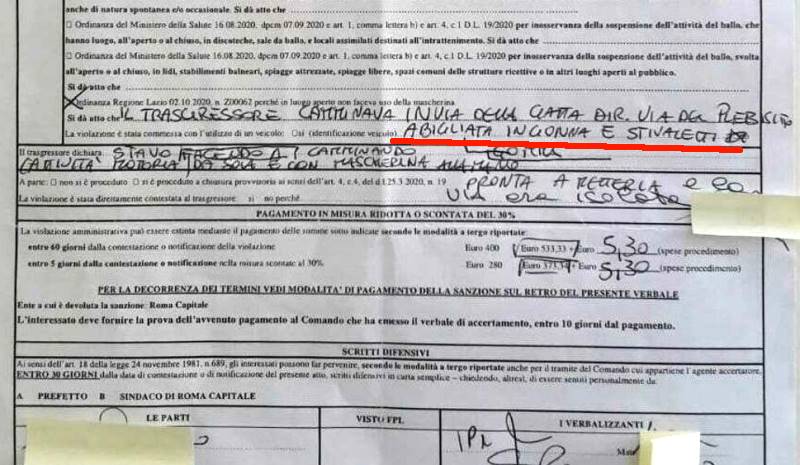 anche di natura spontanea c/o occasionale. Si dà atto che
□ Ordinanza del Ministero della Salute 16.08.2020, dpcm 07.09.2020 e art. 1, comma lettera h) e art. 4, c.1 D.L. 19/2020 per inosservanza della sospensione dell'attività del ballo, che
hanno luogo, all'aperto o al chiuso, in discoteche, sale da ballo, e locali assimilati destinati all'intrattenimento. Si dà atto che
□ Ordinanza del Ministero della Salute 16.08.2020, dpcm 07.09.2020 e art. 1, comma lettera h) e art. 4, c.1 D.L. 19/2020 per inosservanza della sospensione dell'attività del ballo, svolta
all'aperto o al chiuso, in lidi, stabilimenti balneari, spiagge attrezzate, spiagge libere, spazi comuni delle strutture ricettive o in altri luoghi aperti al pubblico.
Si dà atto che
Ordinanza Regione Lazio 02.10.2020, n. Z00062 perché in luogo aperto non faceva uso della mascherina
Si dà atto che IL TRASGRESSORE CAMMINAVA IN VIA DELLA GATTA DIR. VIA DEL PLEBISCITO
La violazione è stata commessa con l'utilizzo di un veicolo: □si (identificazione veicolo) ABIGLIATA IN GONNA E STIVALETTI
Il trasgressore dichiara STAVO FACENDO CAMMINANDO
MOTORIA DA SOLA E CON MASCHERINA ALLA MANO
A parte: □ non si è proceduto □ si è proceduto a chiusura provvisoria ai sensi dell'art. 4, c.4, del d.l.25.3 2020, n. 19 PRONTA A METTERLA e
La violazione è stata direttamente contestata al trasgressore si no perché VIA era isolata
PAGAMENTO IN MISURA RIDOTTA O SCONTATA DEL 30%
La violazione amministrativa può essere estinta mediante il pagamento delle somme sotto indicate secondo le modalità a tergo riportate:
entro 60 giorni dalla contestazione o notificazione della violazione Euro 400 Euro 533,33 + Euro 5,30 (spese procedimento)
entro 5 giorni dalla contestazione o notificazione nella misura scontate al 30% Euro 280 Euro 373,34 + Euro 5,30 (spese procedimento)
PER LA DECORRENZA DEI TERMINI VEDI MODALITA' DI PAGAMENTO DELLA SANZIONE SUL RETRO DEL PRESENTE VERBALE
Ente a cui è devoluta la sanzione: Roma Capitale
L'interessato deve fornire la prova dell'avvenuto pagamento al Comando che ha emesso il verbale di accertamento, entro 10 giorni dal pagamento.
SCRITTI DIFENSIVI
Ai sensi dell'art. 18 della legge 24 novembre 1981, n.689, gli interessati possono far pervenire, secondo le modalità a tergo riportate anche per il tramite del Comando cui appartiene l'agente accertatore,
ENTRO 30 GIORNI dalla data di contestazione o di notificazione del presente atto, scritti difensivi in carta semplice – chiedendo, altresì, di essere sentiti personalmente da:
A PREFETTO B SINDACO DI ROMA CAPITALE
LE PARTI VISTO FPL I VERBALIZZANTI